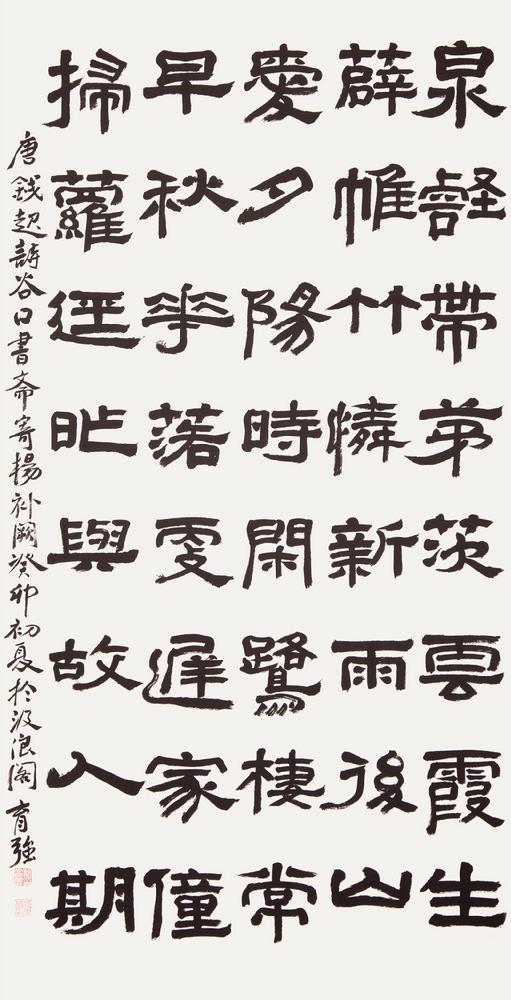 泉壑帶茅茨雲霞生
薜帷竹憐新雨後山
愛夕陽時閑鷺棲常
早秋花落更遲家僮
掃蘿徑昨與故人期
唐錢起詩谷口書斋寄楊补闕癸卯初夏於汲浪閣育強